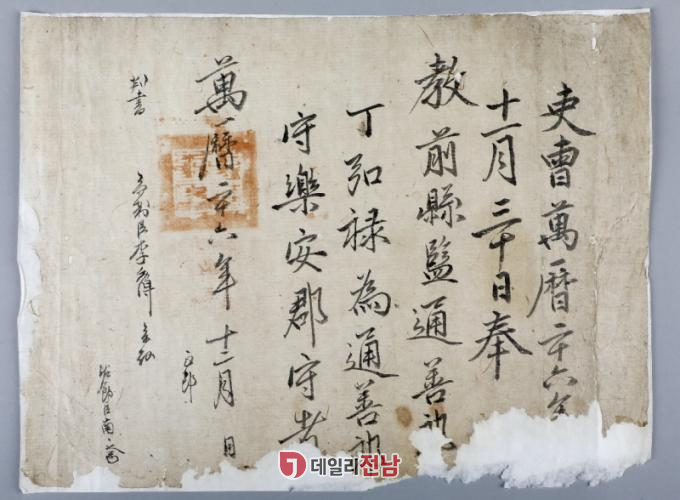 吏曹萬曆二十六年
十一月三十日奉
教前縣監通善郎
丁弘祿為通善郎
守樂安郡守者
萬曆二十六年十二月 日
判書
正郎
데일리전남